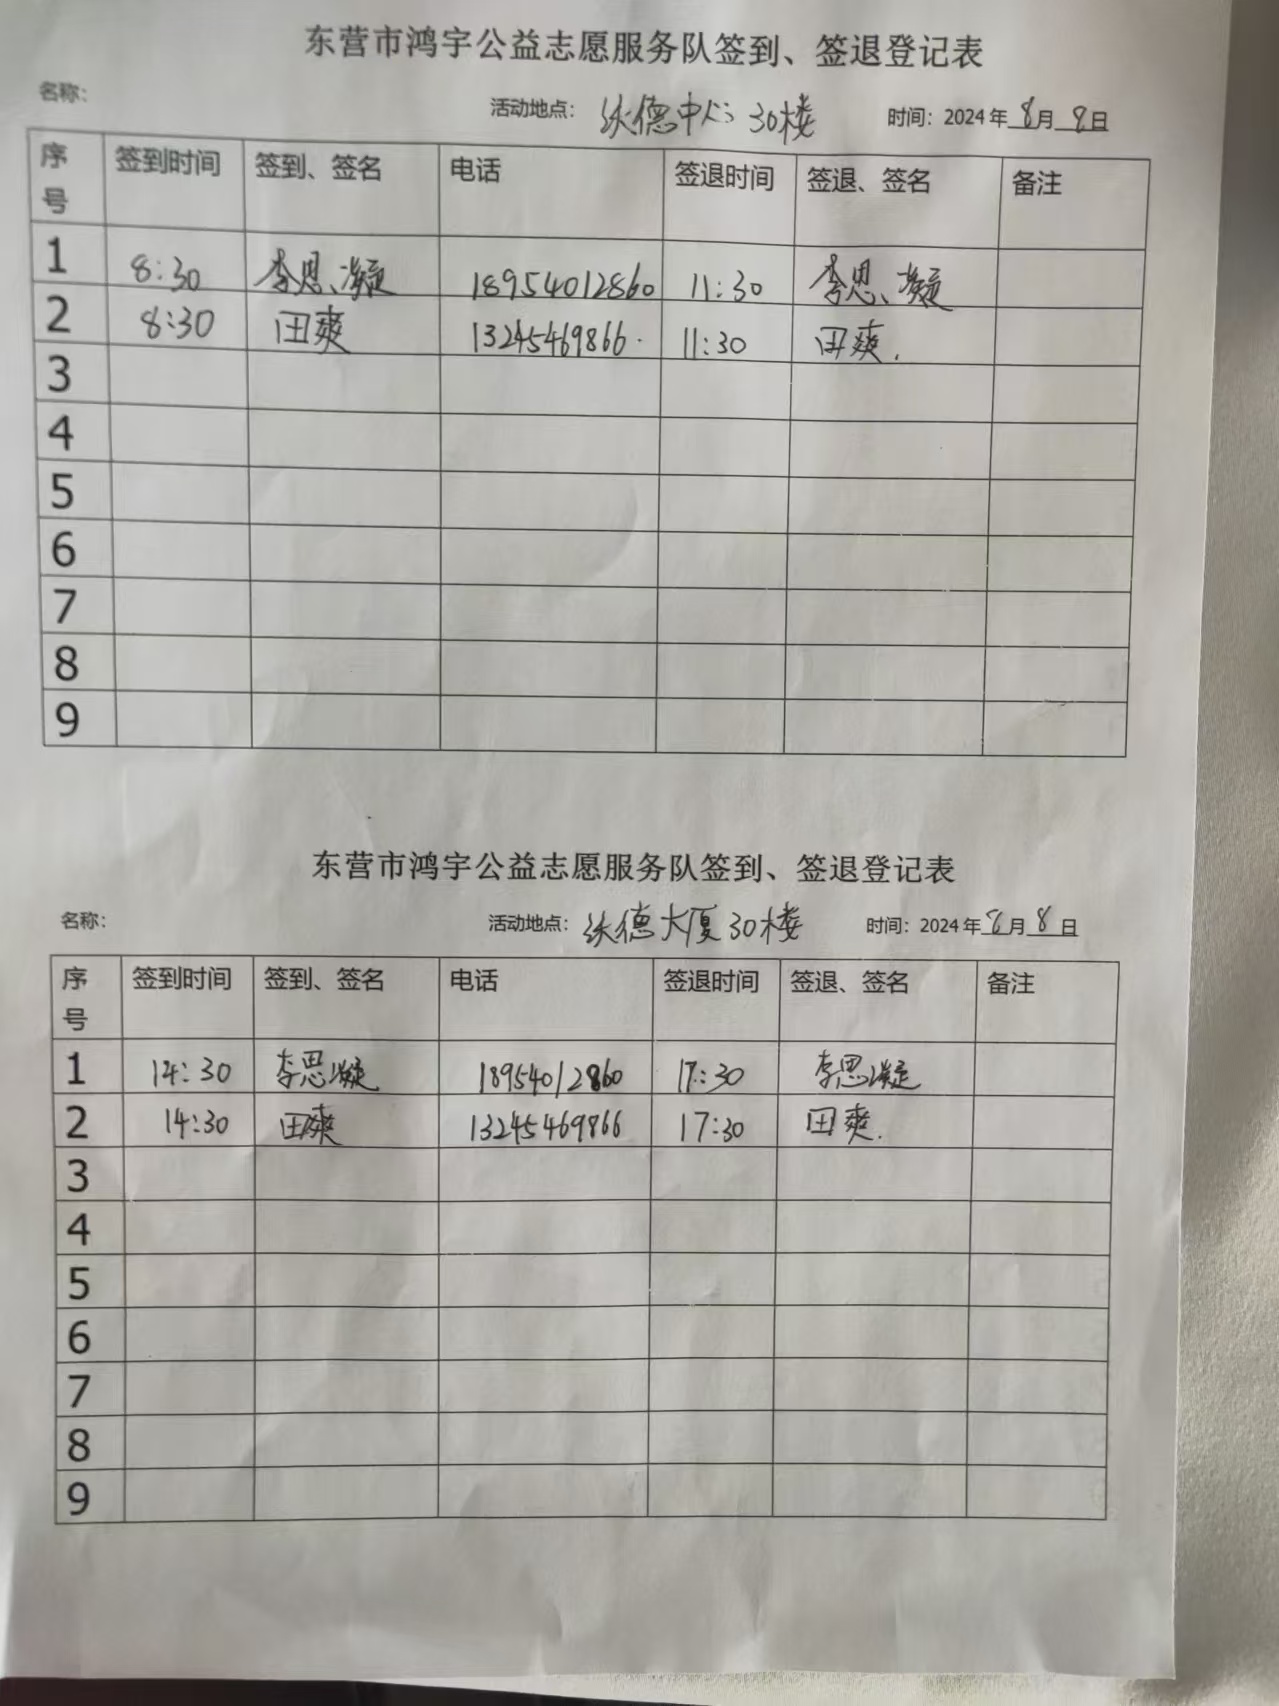 东营市鸿宇公益志愿服务队签到、签退登记表
名称: 活动地点: 沃德中心 30楼 时间: 2024年 8月 9日
序号 签到时间 签到、签名 电话 签退时间 签退、签名 备注
1 8:30 李思凝 18954012860 11:30 李思凝
2 8:30 田爽 13245469866 11:30 田爽
3
4
5
6
7
8
9
东营市鸿宇公益志愿服务队签到、签退登记表
名称: 活动地点: 沃德大厦 30楼 时间: 2024年 8月 8日
序号 签到时间 签到、签名 电话 签退时间 签退、签名 备注
1 14:30 李思凝 18954012860 17:30 李思凝
2 14:30 田爽 13245469866 17:30 田爽
3
4
5
6
7
8
9